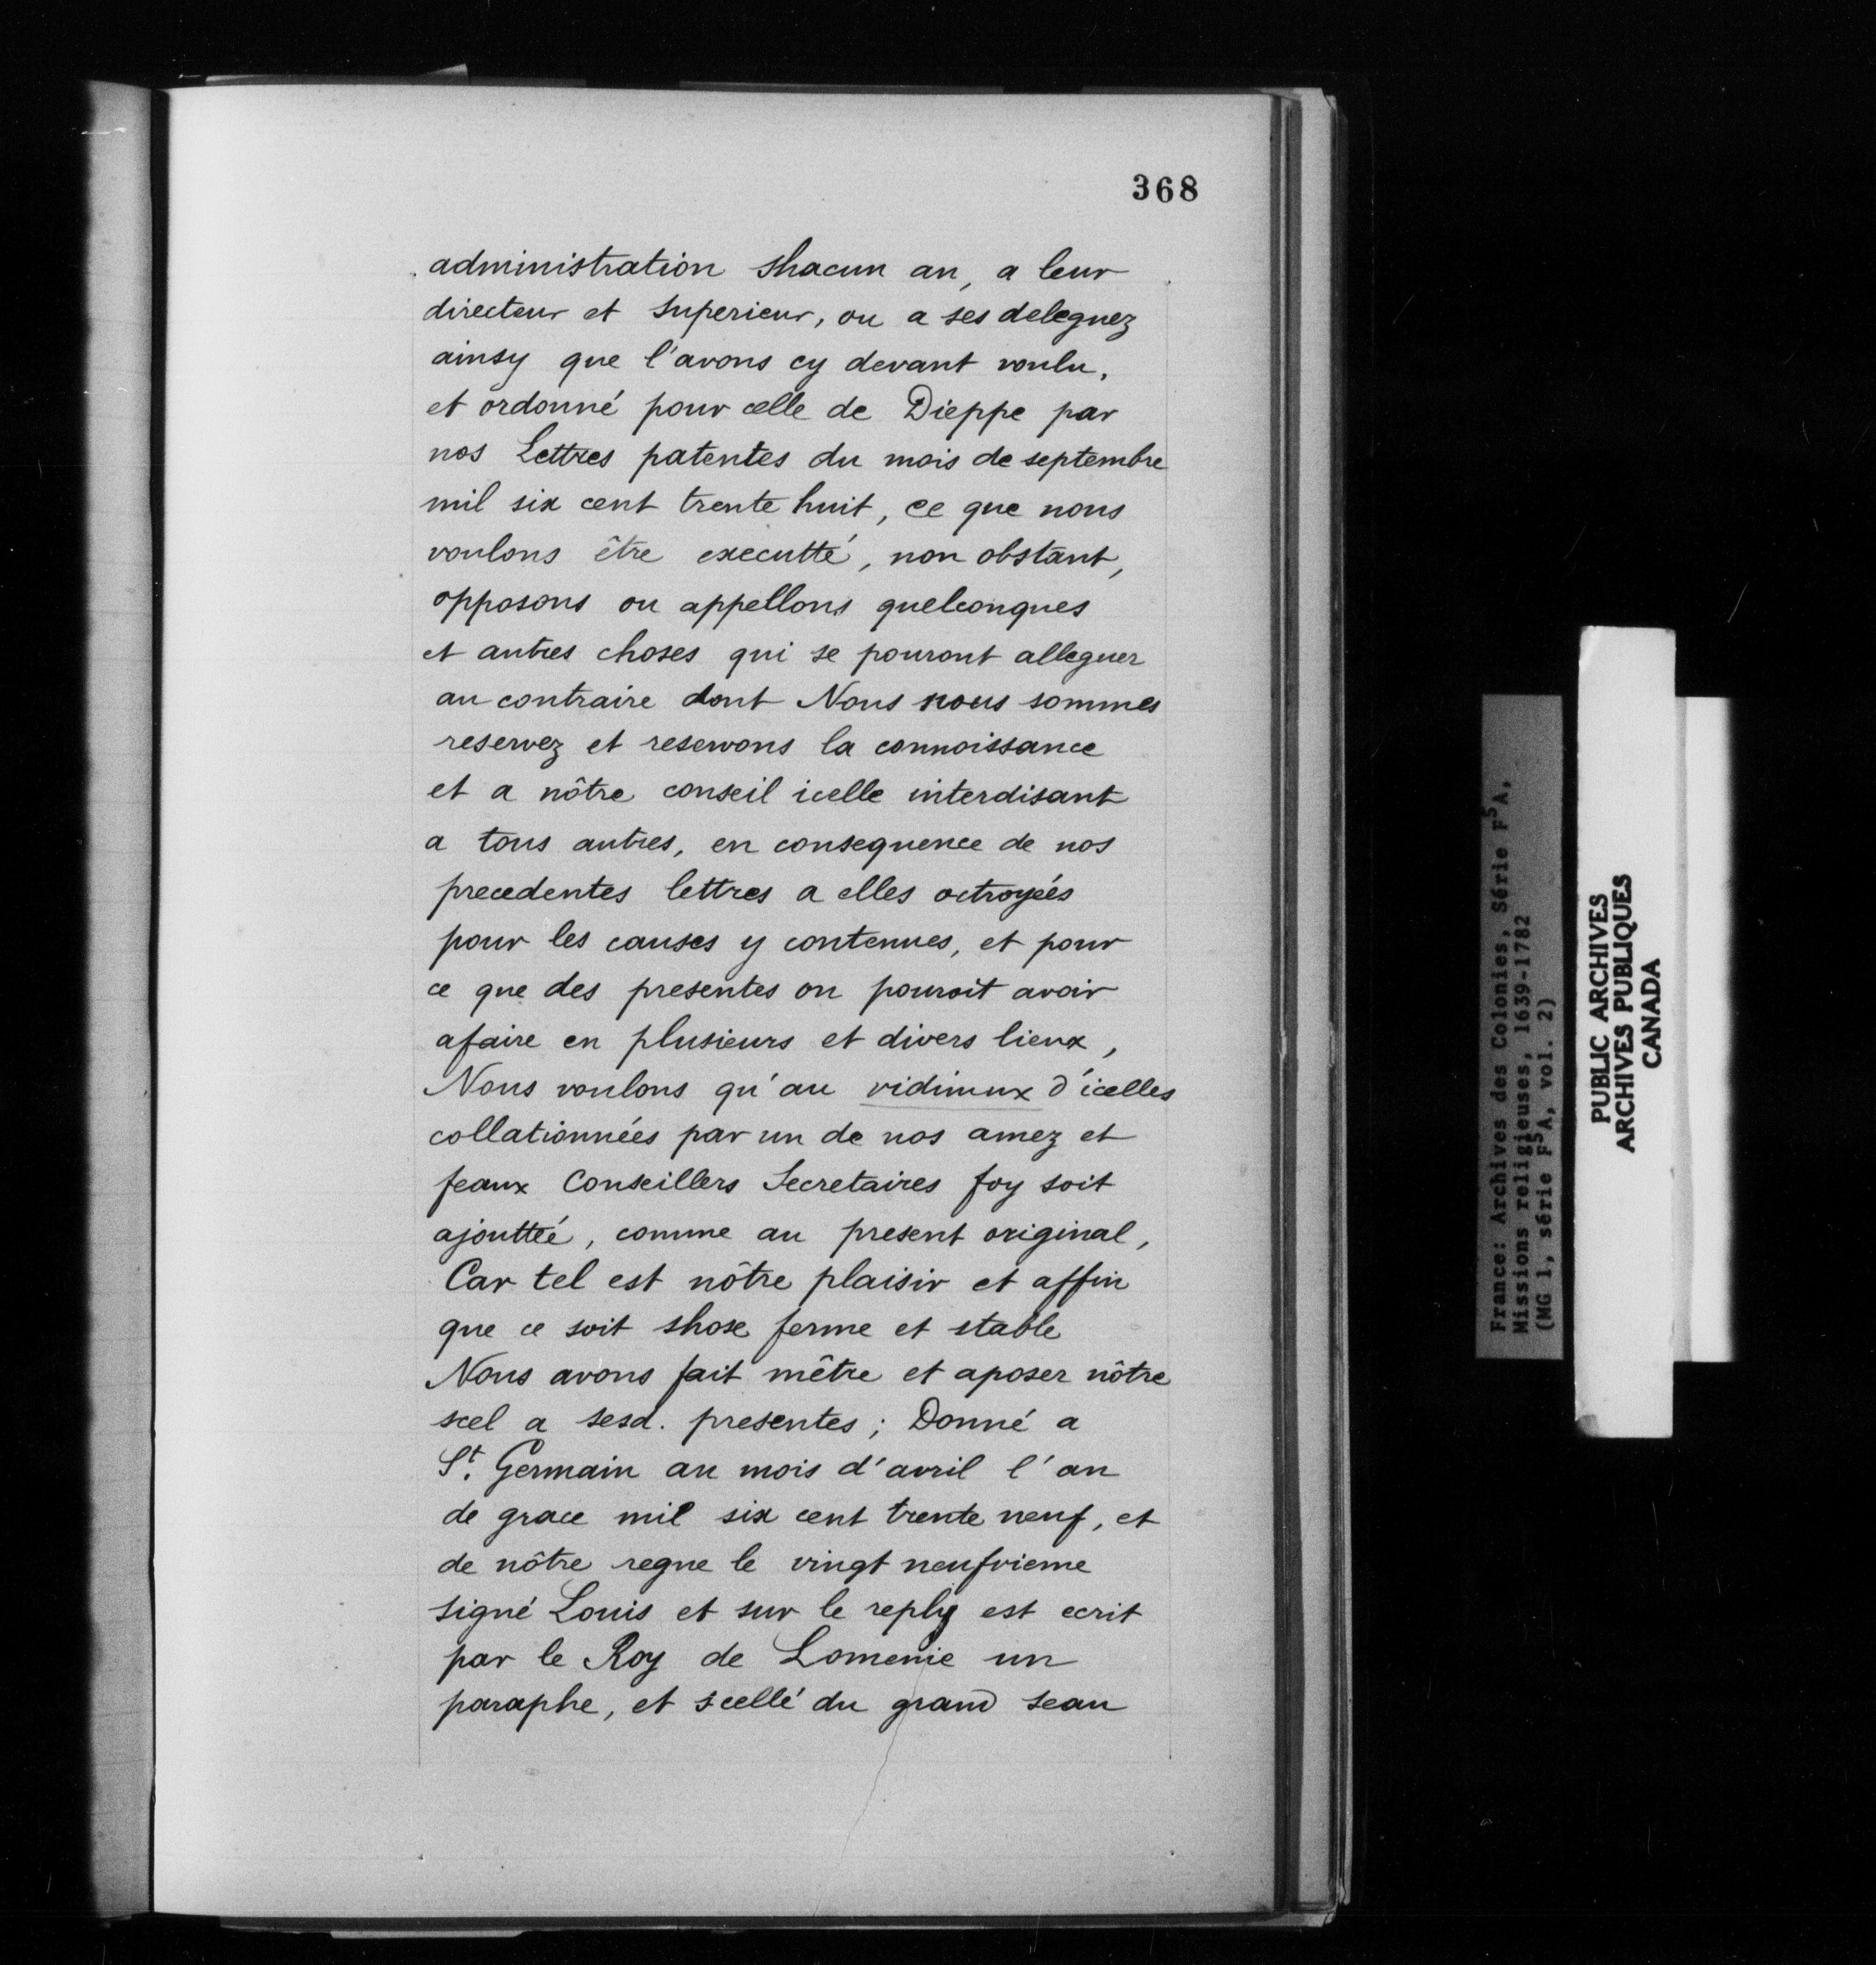 368
administration shacun an, a leur
directeur et superieur, ou a ses deleguez
ainsy que l'avons cy devant voulu,
et ordonné pour celle de Dieppe par
nos Lettres patentes du mois de septembre
mil six cent trente huit, ce que nous
voulons être executté, non obstant,
opposons ou appellons quelconques
et autres choses qui se pouront alleguer
au contraire dont Nous nous sommes
reservez et reservons la connoissance
et a nôtre conseil icelle interdisant
a tous autres, en consequence de nos
precedentes lettres a elles octroyées
pour les causes y contenues, et pour
ce que des presentes on pouroit avoir
afaire en plusieurs et divers lieux,
Nous voulons qu'au vidimux d'icelles
collationnées par un de nos amez et
feaux Conseillers Secretaires foy soit
ajouttée, comme au present original,
Car tel est nôtre plaisir et affin
que ce soit shose ferme et stable
Nous avons fait mêtre et aposer nôtre
scel a sesd. presentes; Donné a
St. Germain au mois d'avril l'an
de grace mil six cent trente neuf, et
de nôtre regne le vingt neufvieme
signé Louis et sur le reply est ecrit
par le Roy de Lomenie un
paraphe, et scellé du grand seau
France: Archives des Colonies, Série F5A,
Missions religieuses, 1639-1782
(MG 1, série F5A, vol. 2)
PUBLIC ARCHIVES
ARCHIVES PUBLIQUES
CANADA